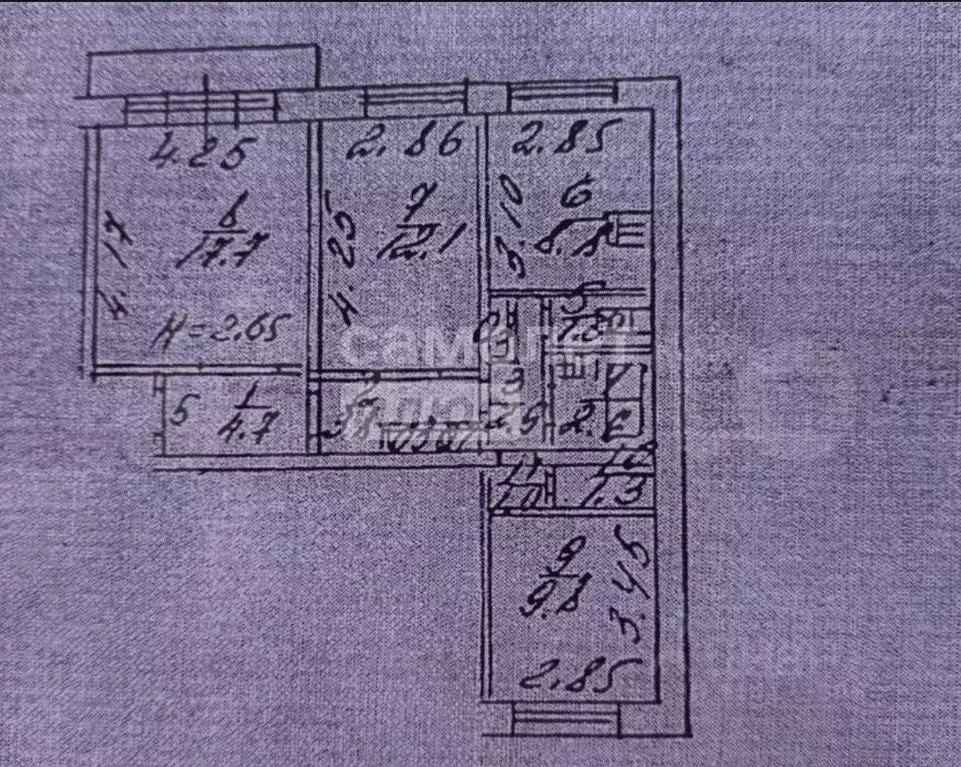 4.25
2.86
2.85
4.17
17.7
4.25
7
12.1
3.10
6
8.8
H=2.65
самолет
плюс
5
1
4.7
3
2.5
11
1.0
10
1.3
9
9.8
3.45
2.85